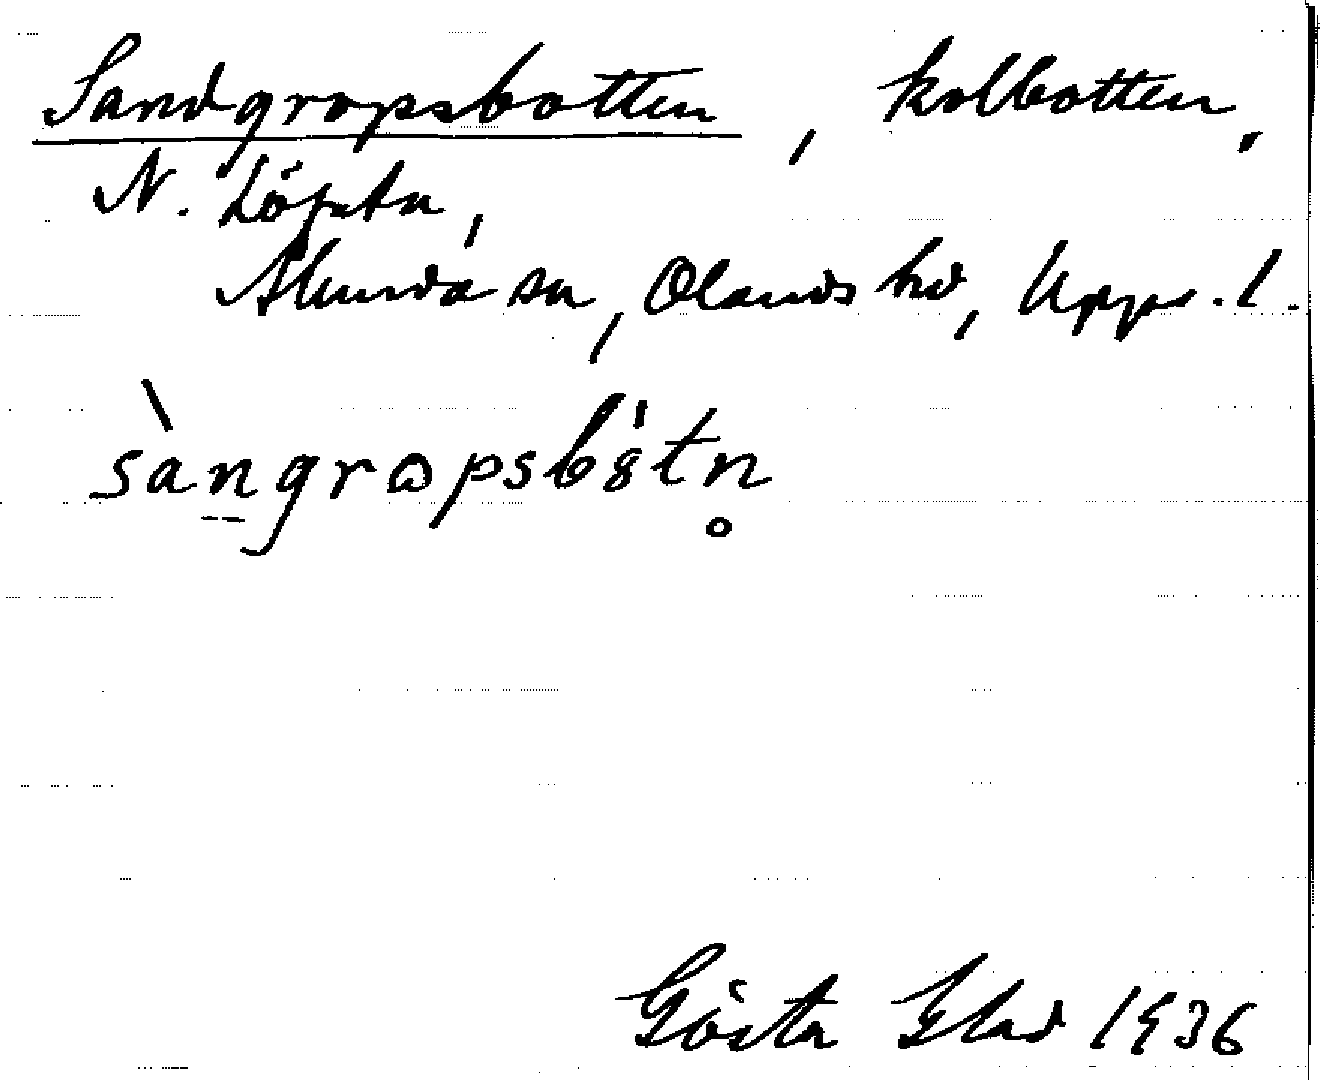 Sandgropsbotten, kolbotten,
N. Löpsta,
Alunda sn, Olands hd, Upps. l.
sàngrωpsbȣ́tn̥
Gösta Elad 1936